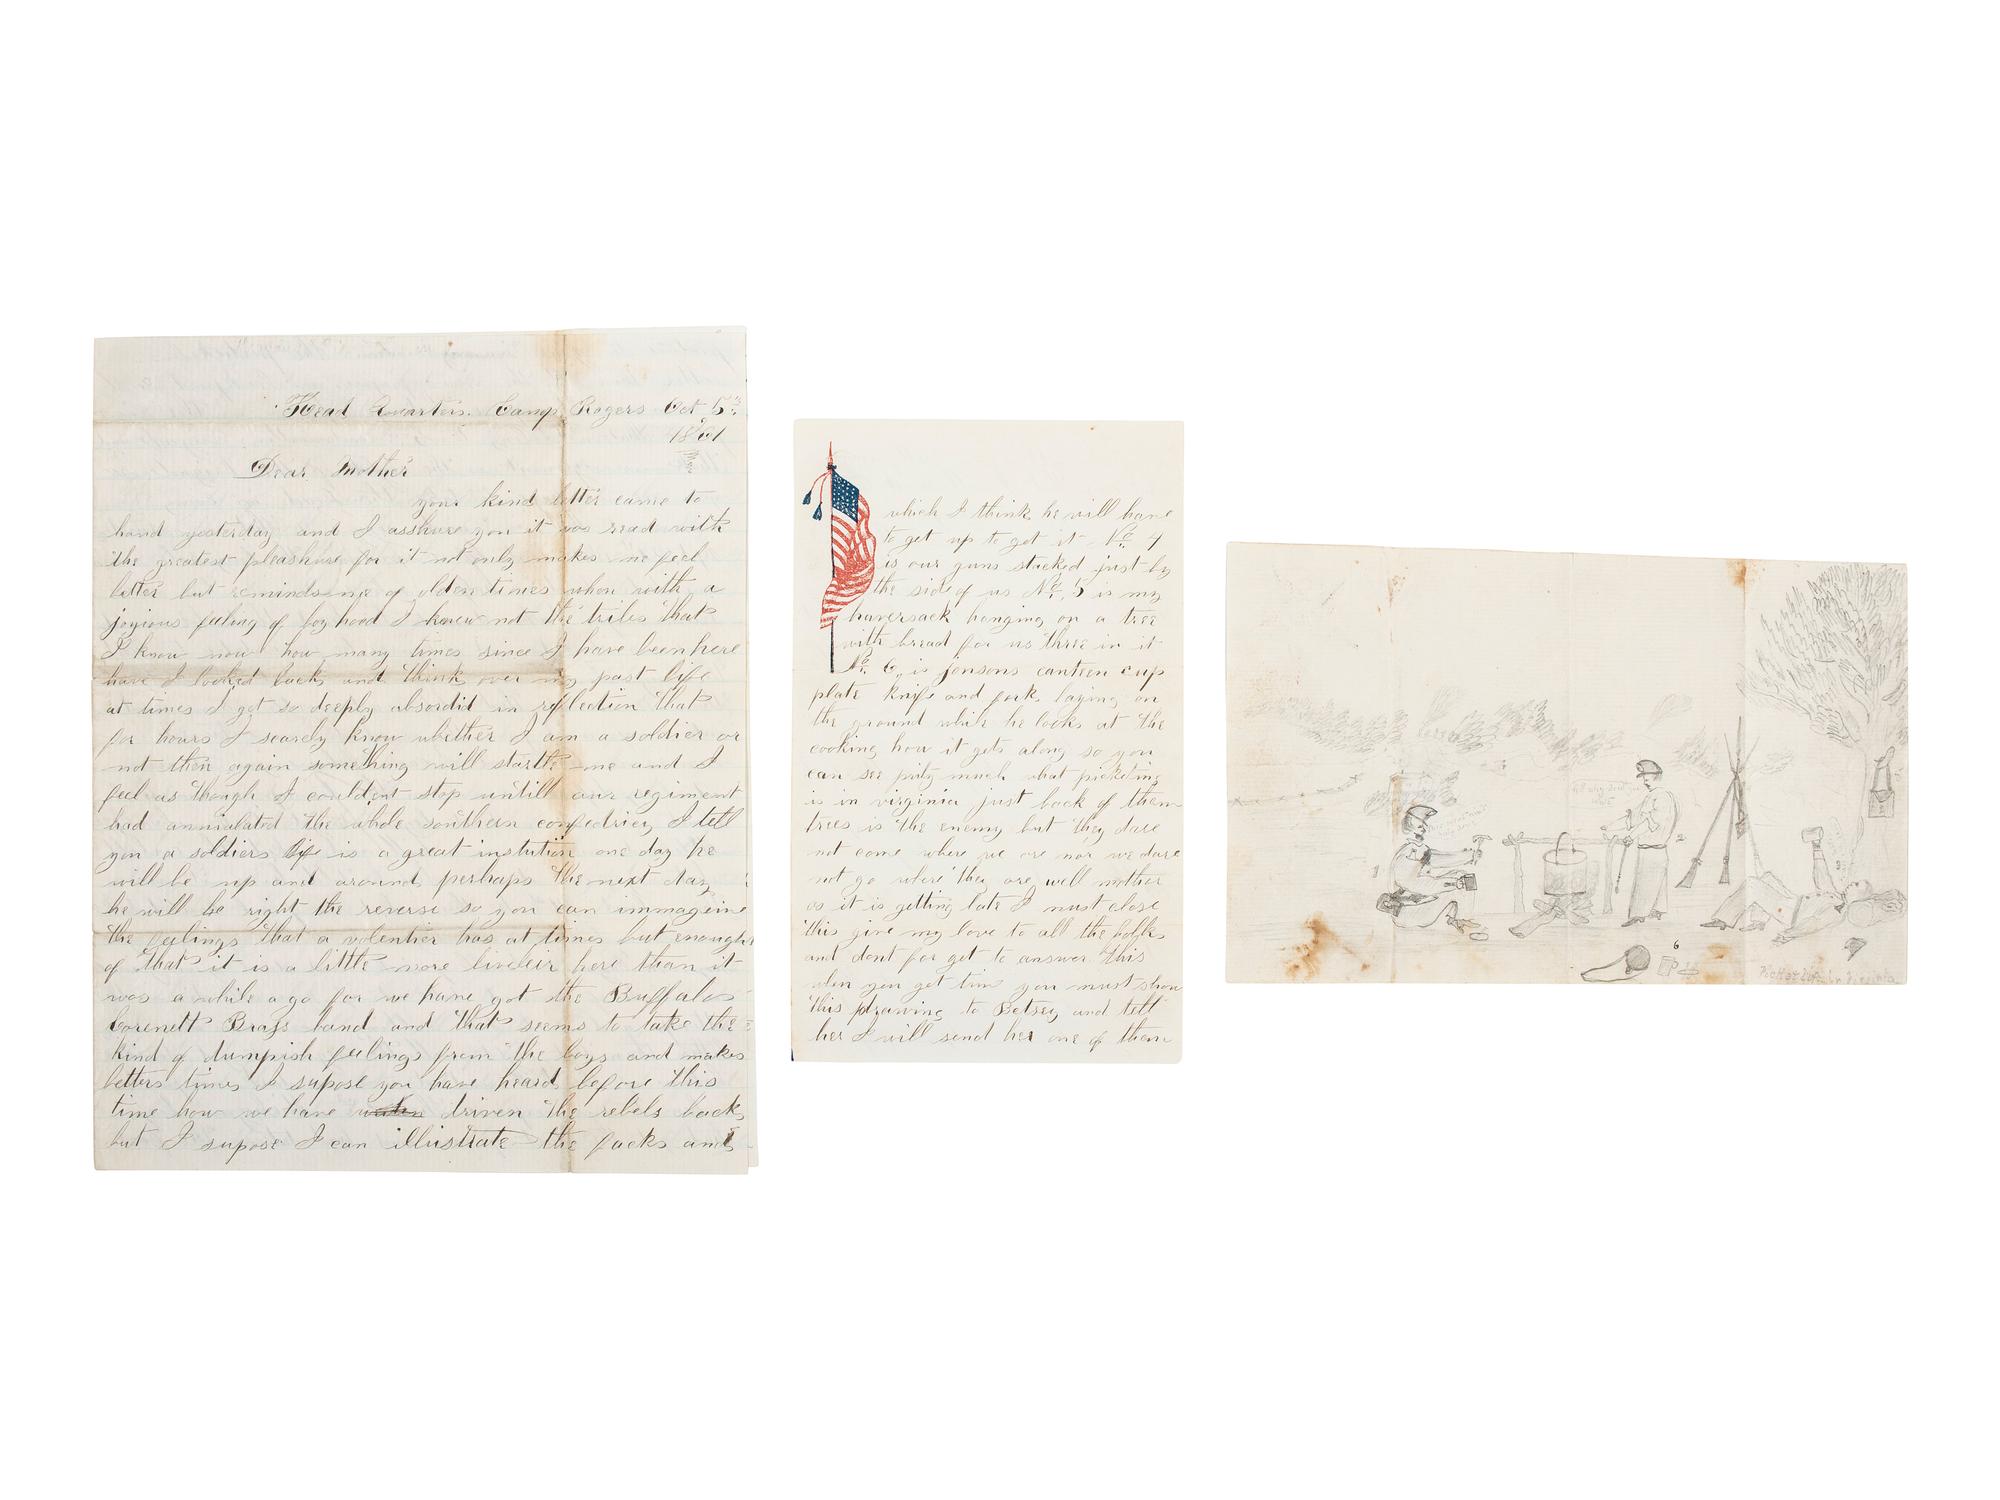 Head Quarters. Camp Rogers Oct 5th
1861
Dear Mother
your kind letter came to
hand yesterday and I asshure you it was read with
the greatest pleashure for it not only makes me feel
better but reminds me of olden times when with a
joyious feeling of boyhood I knew not the triles that
I know now how many times since I have been here
have I looked back and think over my past life
at times I get so deeply absordid in reflection that
for hours I scarely know whether I am a soldier or
not then again something will startle me and I
feel as though I couldent stop untill our regiment
had annialated the whole southern confedricy I tell
you a soldiers life is a great instution one day he
will be up and around perhaps the next day
he will be right the reverse so you can immageine
the feelings that a volentier has at times but enough
of that it is a little more liveleir here than it
was a while a go for we have got the Buffalo
Corenett Brass band and that seems to take the
kind of dumpish feelings from the boys and makes
betters times I supose you have heard before this
time how we have driven the rebels back
but I supose I can illustrate the facks and
which I think he will have
to get up to get it No. 4
is our guns stacked just by
the side of us No. 5 is my
haversack hanging on a tree
with bread for us three in it
No. 6. is jonsons canteen cup
plate knife and fork laying on
the ground while he looks at the
cooking how it gets along so you
can see prity much what picketing
is in virginia just back of them
trees is the enemy but they dare
not come where we are nor we dare
not go where they are well mother
as it is getting late I must close
this give my love to all the folks
and dont for get to answer this
when you get time you must show
this drawing to Betsey and tell
her I will send her one of them
1
2
6
Virginia